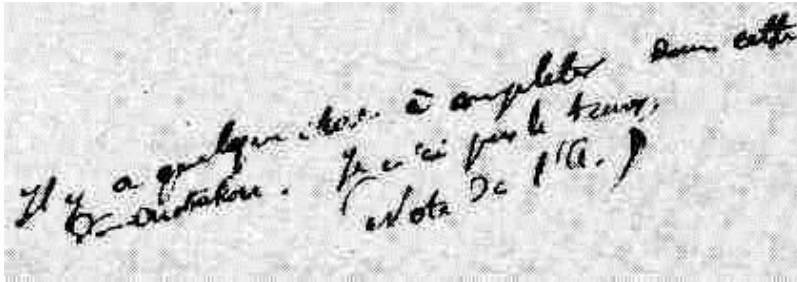 Il y a quelque chose à completer dans cette
démonstration. Je n'ai pas le tems.
(Note de l'A.)